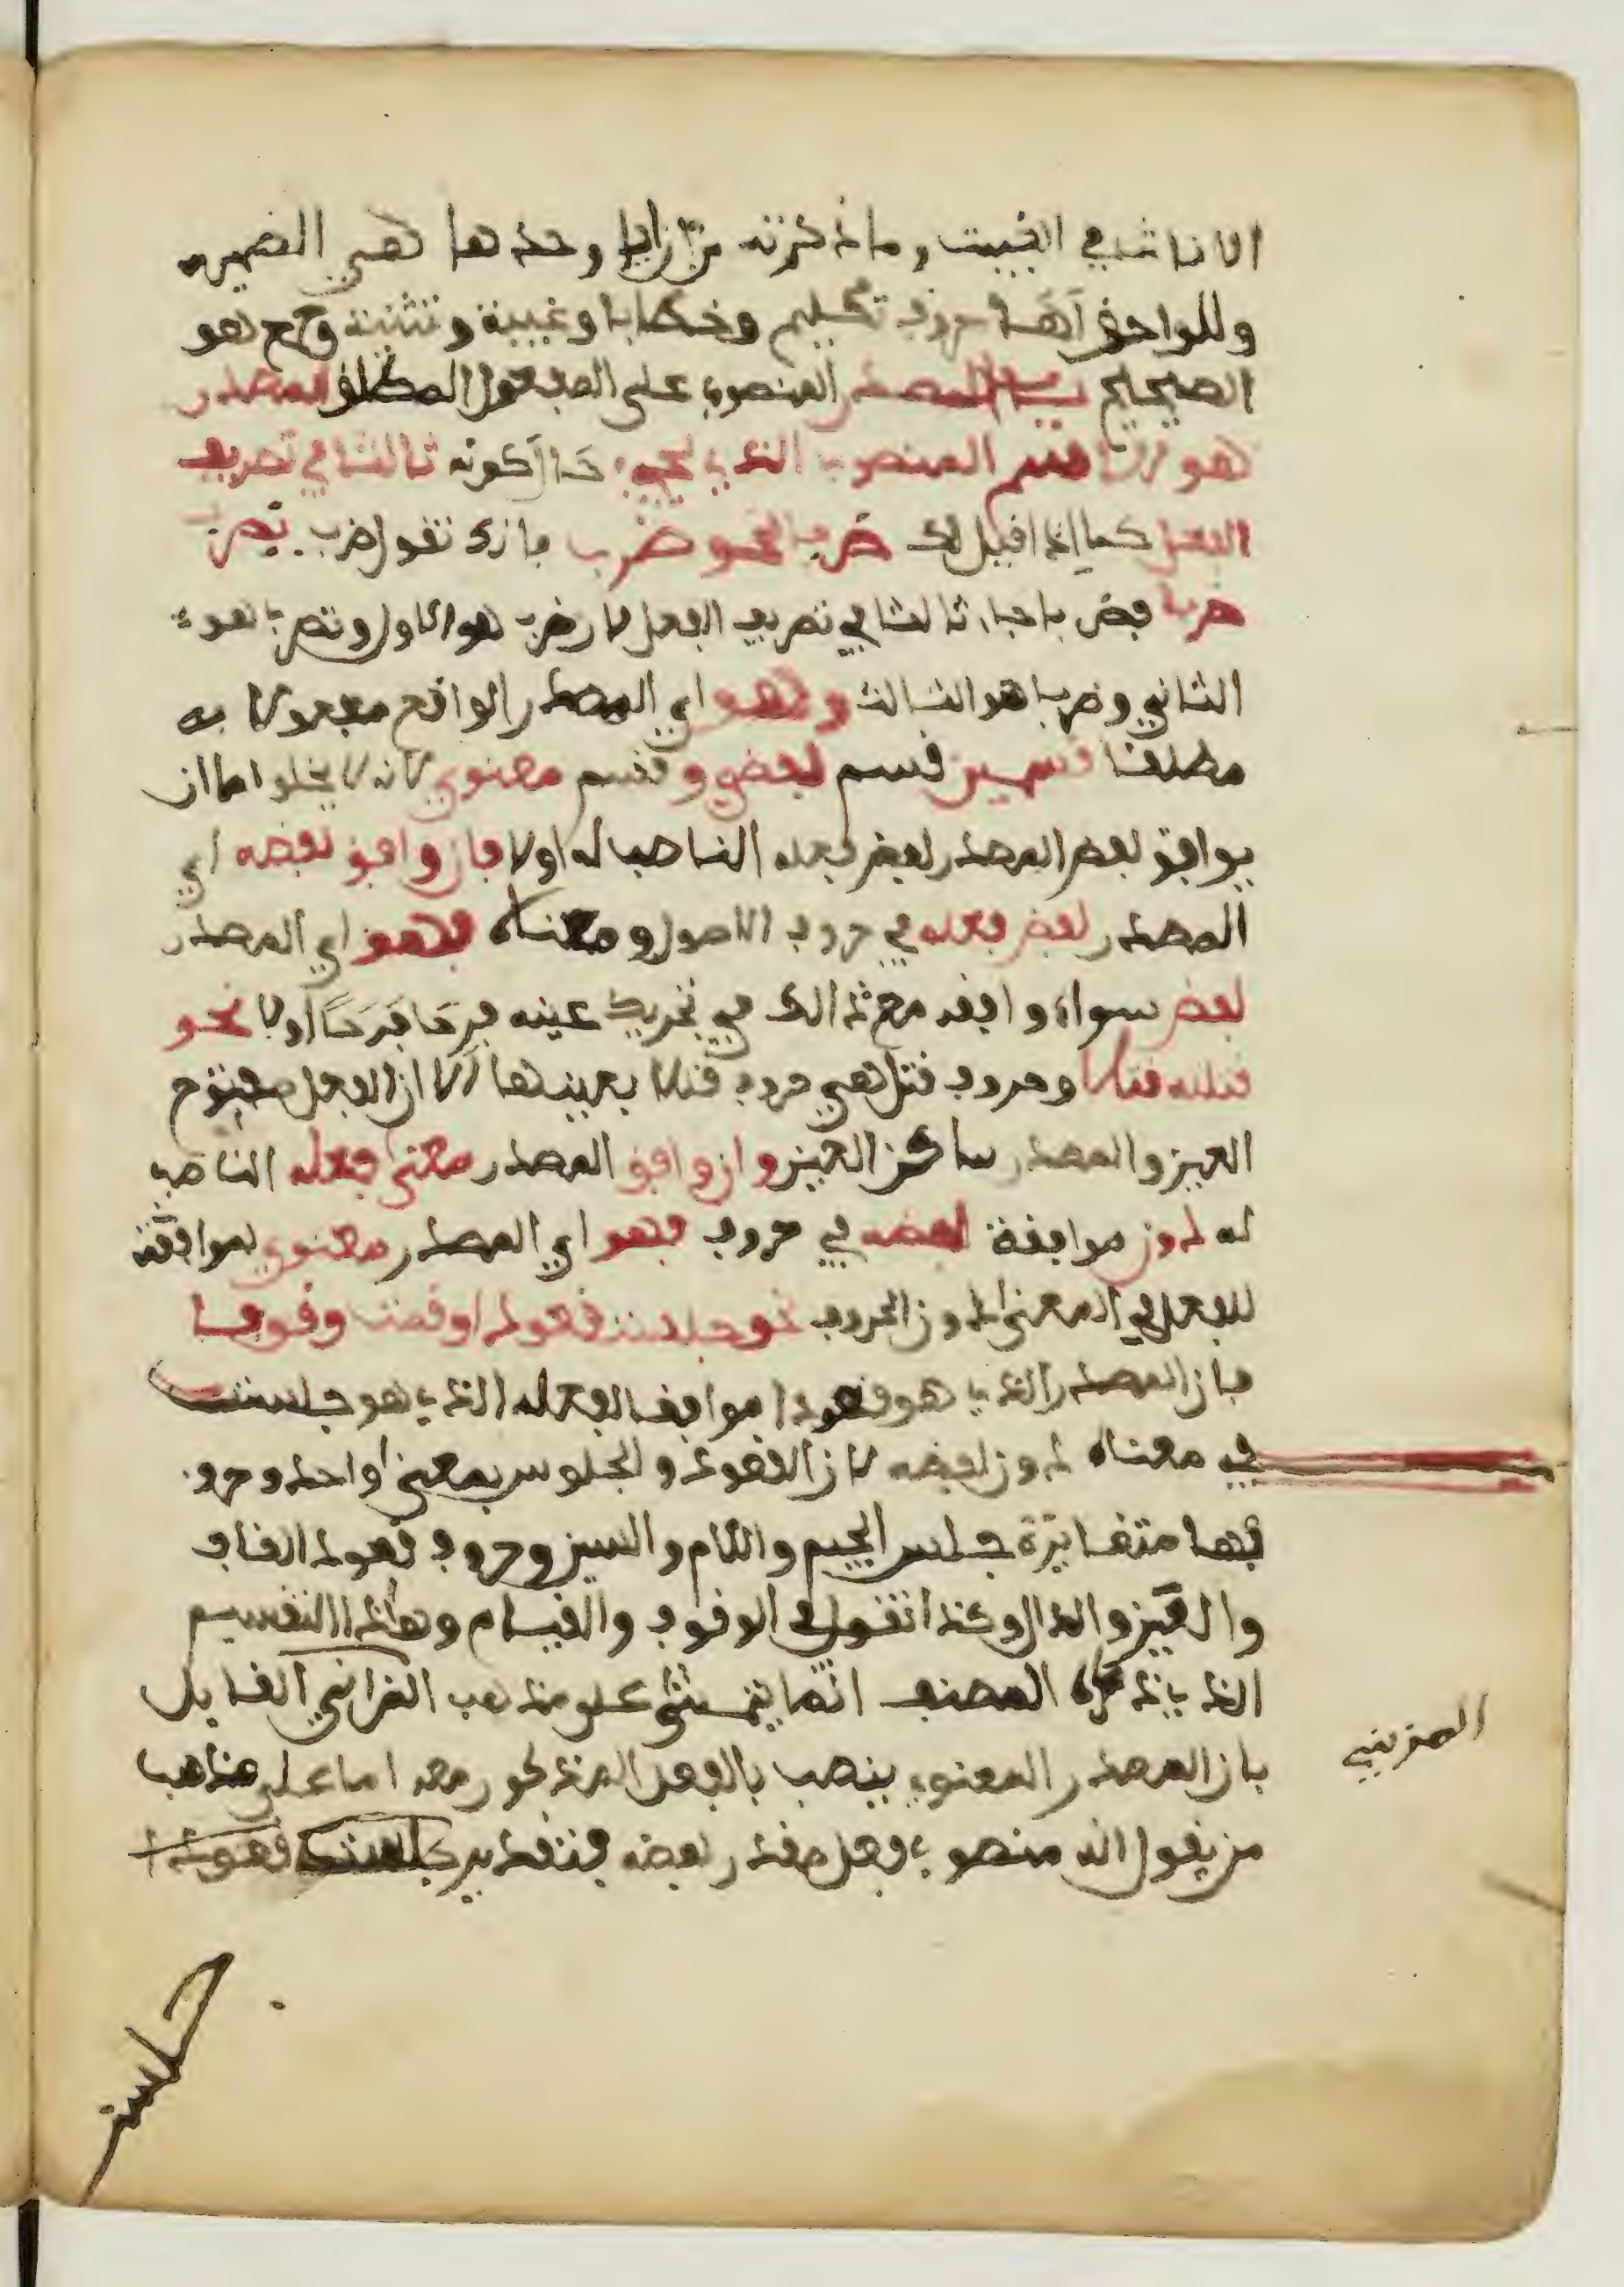 الاناث في الغيبت وما ذكرته من ان ايا وحدها هي الضمير
وللواحق لها حروف تكليم وخطاب وغيبة وتثنية وجمع هو
الصحيح باب المصدر المنصوب على المفعول المطلق المصدر
هو الاسم المنصوب الذي يجيء حال كونه ثالثا في تصريف
الفعل كما اذا قيل لك صرف نحو ضرب فانك تقول ضرب يضرب
ضربا فضربا جاء ثالثا في تصريف الفعل لان ضرب هو الاول ويضرب هو
الثاني وضربا هو الثالث وهو اي المصدر الواقع مفعولا به
مطلقا قسمين قسم لفظي وقسم معنوي لانه لا يخلو اما ان
يوافق لفظ المصدر لفظ فعله الناصب له اولا فان وافق لفظه اي
المصدر لفظ فعله في حروف الاصول ومعناه فهو اي المصدر
لفظي سواء وافقه مع ذالك في تحريك عينه فرح فرحا اولا نحو
قتلته قتلا وحروف قتل هي حروف قتلا بعينها الا ان الفعل مفتوح
العين والمصدر ساكن العين وان وافق المصدر معنى فعله الناصب
له دون موافقة لفظه في حروف فهو اي المصدر معنوي لموافقته
للفعل في المعنى دون الحروف نحو جلست قعودا وقمت وقوفا
فان المصدر الذي هو قعودا موافق لفعله الذي هو جلست
في معناه دون لفظه لان القعود والجلوس بمعنى واحد وحرو
فهما متغايرة جلس الجيم واللام والسين وحروف قعود القاف
والعين والدال وكذا تقول في الوقوف والقيام وهاذا التقسيم
الذي ذكره المصنف انما يتمشى على مذهب المزاني القايل
بان المصدر المعنوي ينصب بالفعل المذكور معه اما على مذاهب
من يقول انه منصوب بفعل مقدر لفظه فتقدير جلست قعودا
جلست
المزيني